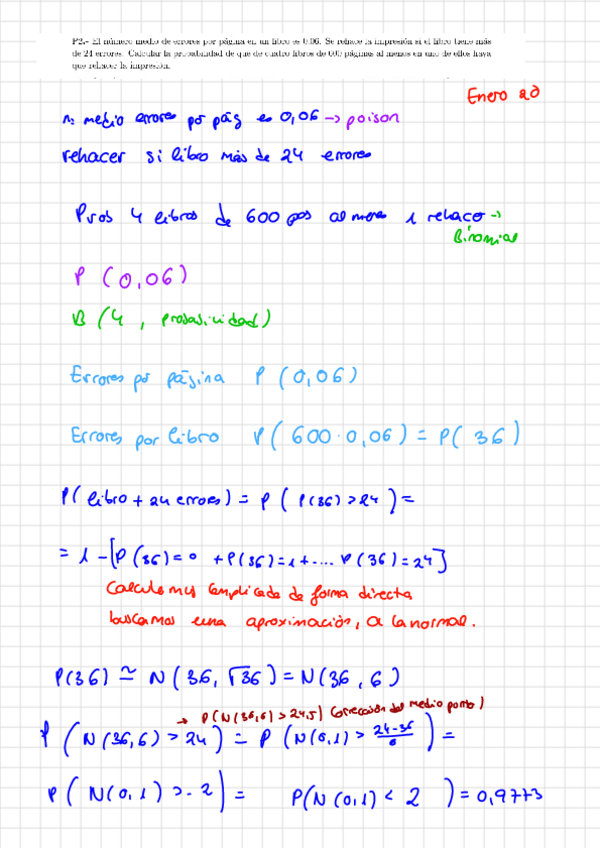 P2.- El número medio de errores por página en un libro es 0.06. Se rehace la impresión si el libro tiene más
de 24 errores. Calcular la probabilidad de que de cuatro libros de 600 páginas al menos en uno de ellos haya
que rehacer la impresión.
Enero 20
nº medio errores por pág es 0,06 → poison
rehacer si libro más de 24 errores
Prob 4 libros de 600 pas al menos 1 rehacer →
Binomial
P (0,06)
B (4, probabilidad)
Errores por página P (0,06)
Errores por libro P(600·0,06) = P(36)
P(libro + 24 errores) = P(P(36) > 24) =
= 1 - [P(36)=0 + P(36)=1 + .... P(36)=24]
Calculo muy complicado de forma directa
buscamos una aproximación, a la normal.
P(36) ≃ N(36, √36) = N(36, 6)
→ P(N(36,6) > 24,5) (corrección del medio punto)
P(N(36,6) > 24) = P(N(0,1) > (24-36)/6) =
P(N(0,1) > -2) = P(N(0,1) < 2) = 0,9773